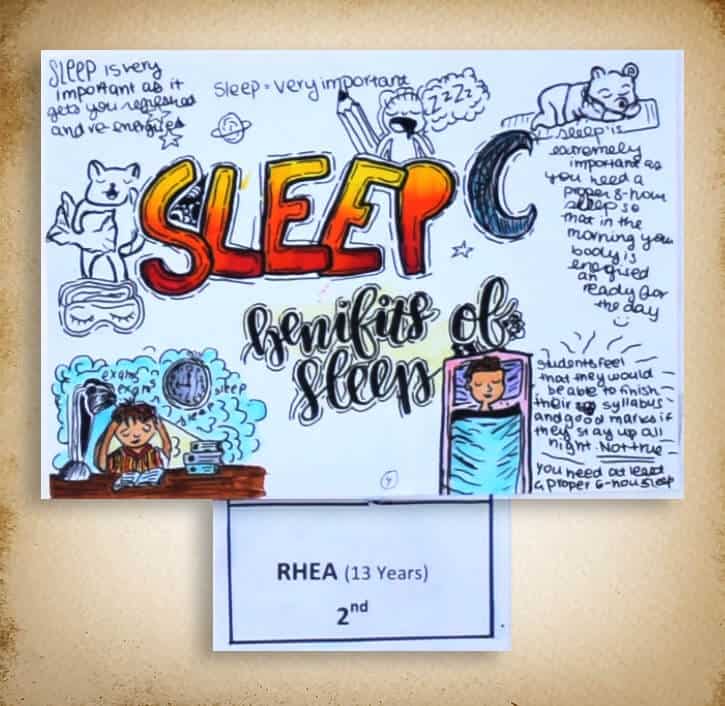 SLEEP is very
important as it
gets you refreshed
and re-energises
Sleep = very important
ZZZZ
SLEEP
sleep is
extremely
important as
you need a
proper 8-hour
sleep so
that in the
morning your
body is
energised
an
ready for
the day
benifits of
sleep
exams
exams
sleep
students feel
that they would
be able to finish
their syllabus
and good marks if
they stay up all
night. Not true
you need at least
a proper 6-hou sleep
RHEA (13 Years)
2nd